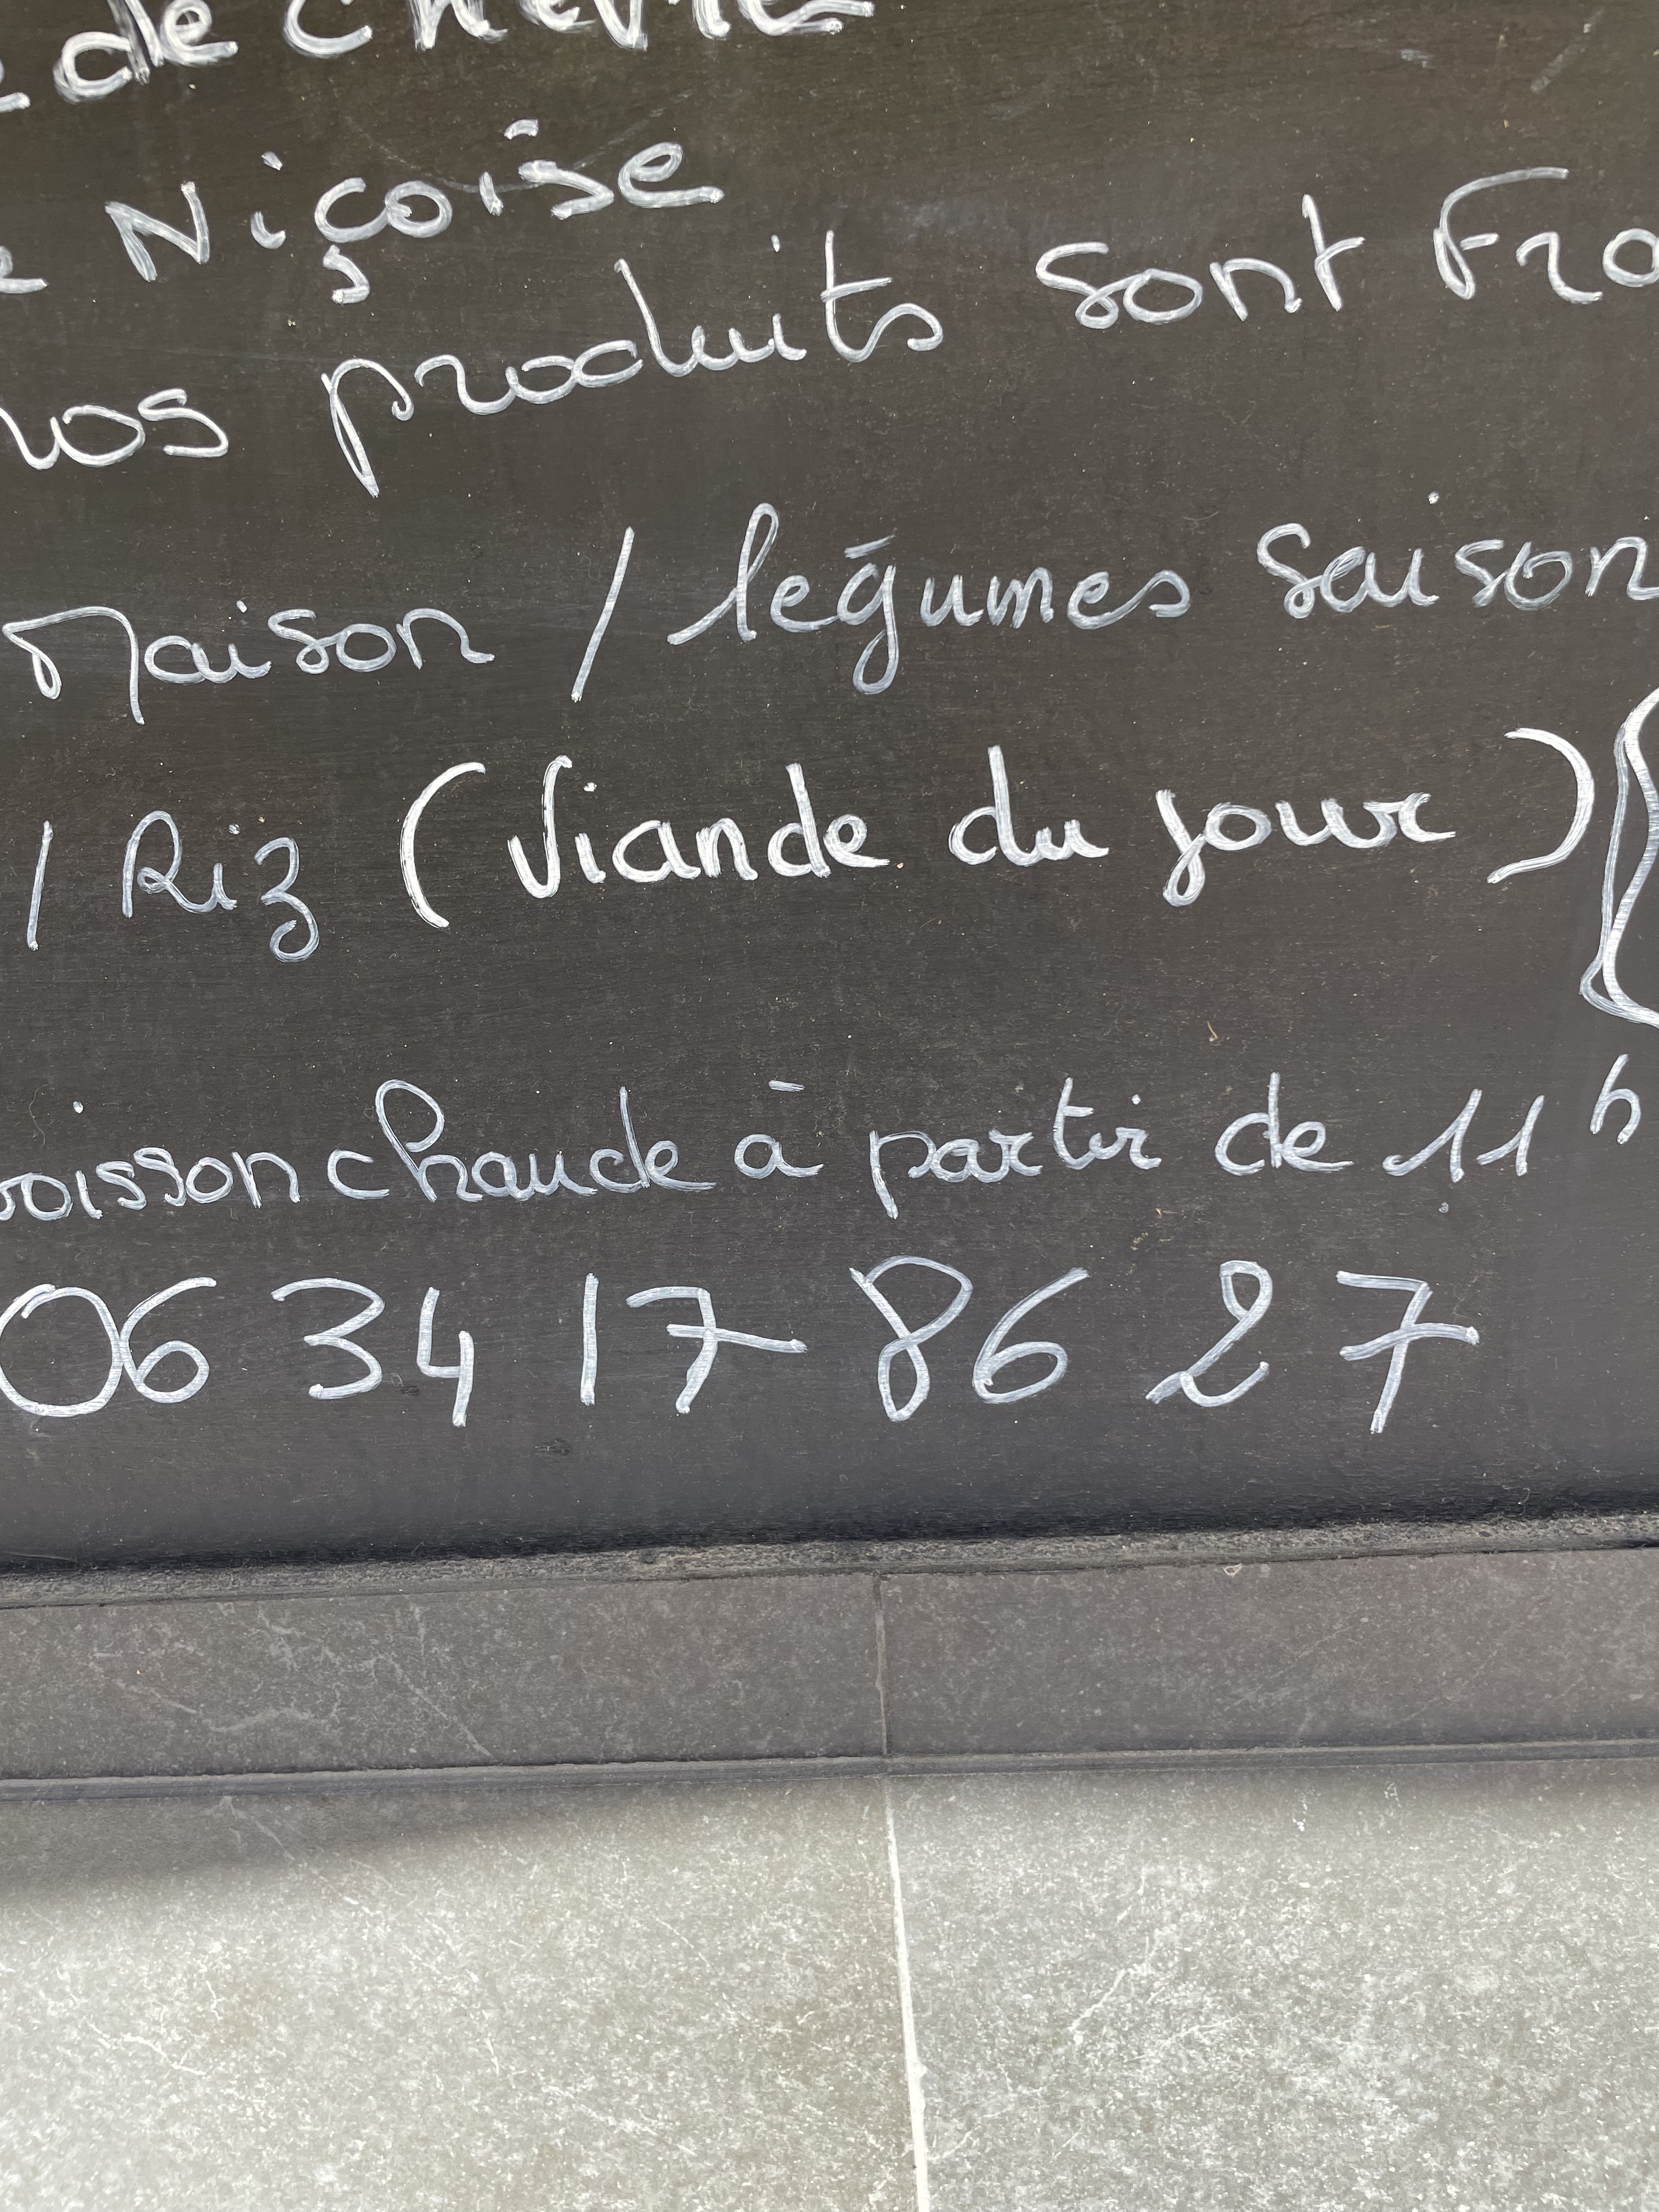 de chèvre
Niçoise
nos produits sont Fra
Maison / légumes saison
/ Riz (Viande du jour)
boisson chaude à partir de 11h
06 34 17 86 27